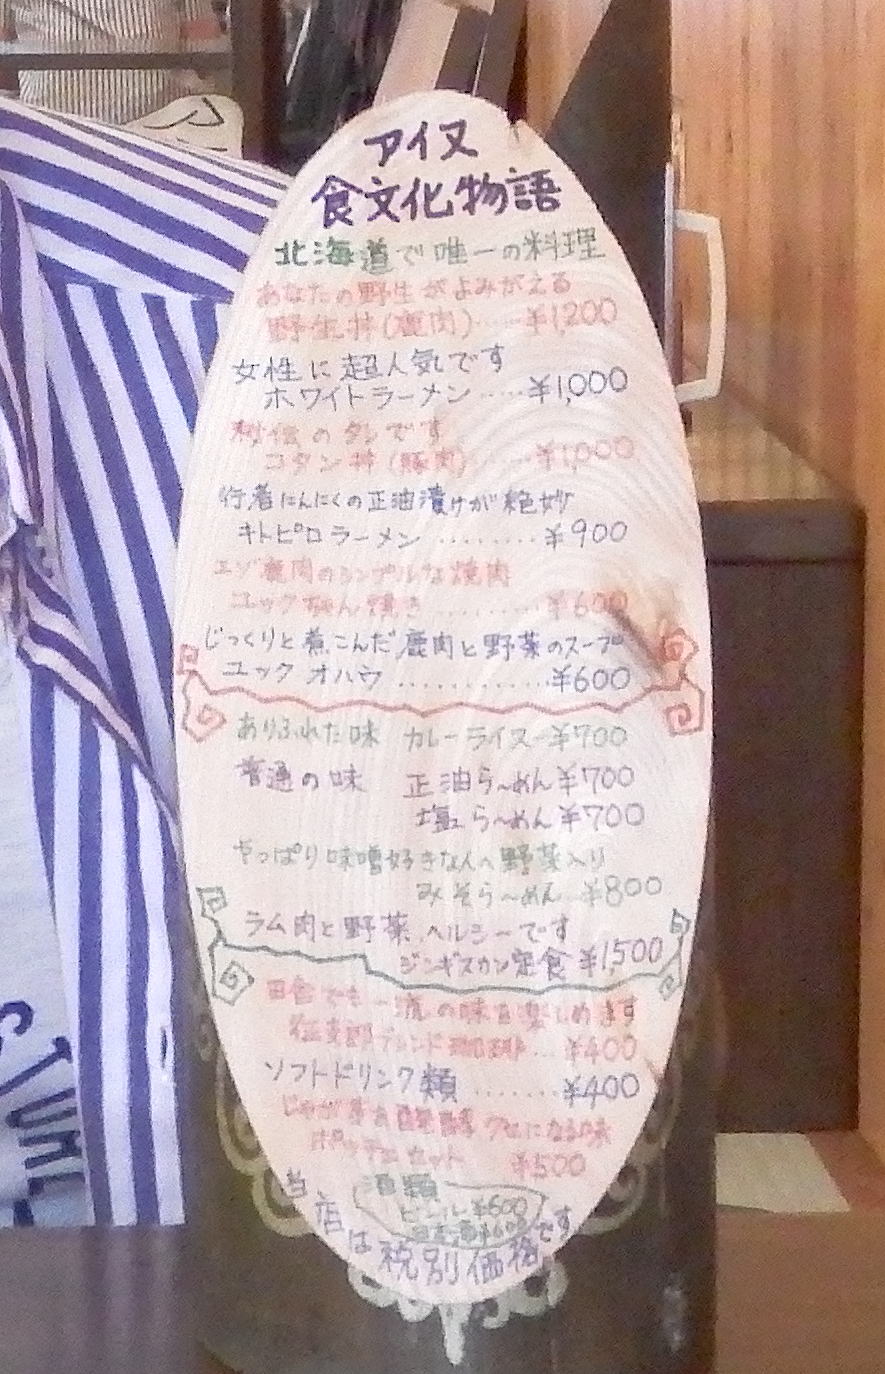 アイヌ
食文化物語
北海道で唯一の料理
あなたの野生がよみがえる
野生丼(鹿肉)……¥1,200
女性に超人気です
ホワイトラーメン……¥1,000
秘伝のタレです
コタン丼(豚肉)……¥1,000
行者にんにくの正油漬けが絶妙
キトピロラーメン………¥900
エゾ鹿肉のシンプルな焼肉
ユックちゃん焼き………¥600
じっくりと煮こんだ鹿肉と野菜のスープ
ユックオハウ…………¥600
ありふれた味 カレーライス…¥700
普通の味 正油ら〜めん¥700
塩ら〜めん¥700
やっぱり味噌好きな人へ野菜入り
みそら〜めん…¥800
ラム肉と野菜、ヘルシーです
ジンギスカン定食 ¥1,500
田舎でも一流の味を楽しめます
ブレンド珈琲…¥400
ソフトドリンク類………¥400
じゃが芋 クセになる味
ポッチェ セット ¥500
酒類
ビール¥600
当店は税別価格です
STUML